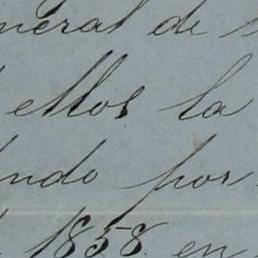 neral de
ellos la
ndo por
1858 en